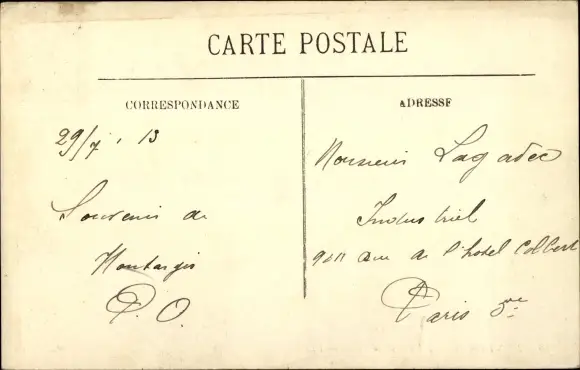 CARTE POSTALE
CORRESPONDANCE
29/7 . 13
Souvenir de
Montargis
P. O.
ADRESSE
Monsieur Lagadec
Industriel
9 & 11 rue de l'hotel Colbert
Paris 5me